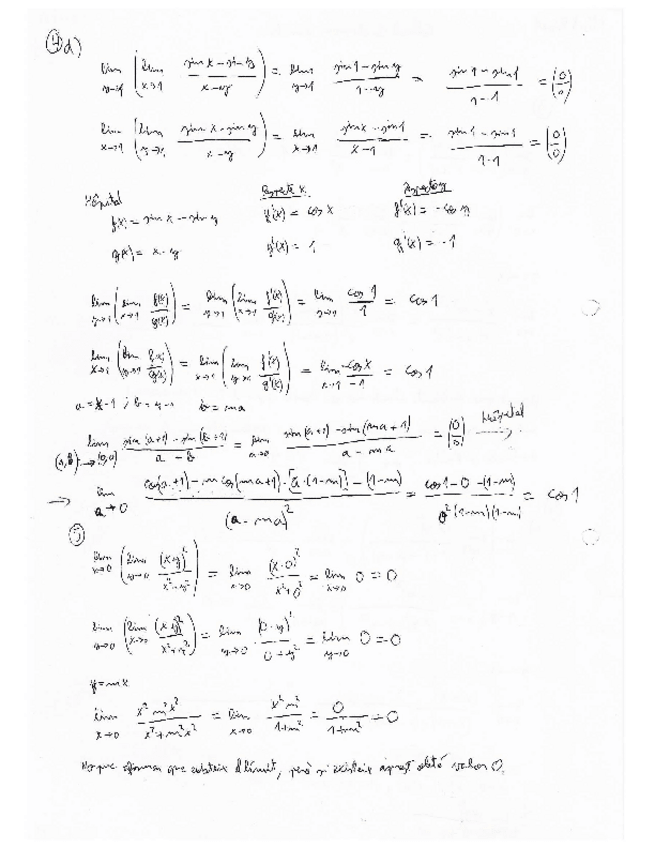 4d)
lim y→1 ( lim x→1 (sin x − sin y)/(x−y) ) = lim y→1 (sin 1 − sin y)/(1−y) = (sin 1 − sin 1)/(1−1) = (0/0)
lim x→1 ( lim y→1 (sin x − sin y)/(x−y) ) = lim x→1 (sin x − sin 1)/(x−1) = (sin 1 − sin 1)/(1−1) = (0/0)
Hôpital Respecte x Respecte y
f(x) = sin x − sin y f'(x) = cos x f'(x) = −cos y
g(x) = x − y g'(x) = 1 g'(x) = −1
lim y→1 ( lim x→1 f(x)/g(x) ) = lim y→1 ( lim x→1 f'(x)/g'(x) ) = lim y→1 cos 1/1 = cos 1
lim x→1 ( lim y→1 f(x)/g(x) ) = lim x→1 ( lim y→1 f'(x)/g'(x) ) = lim x→1 −cos x/−1 = cos 1
a = x−1 ; b = y−1 b = ma
lim (a,b)→(0,0) (sin(a+1) − sin(b+1))/(a−b) = lim a→0 (sin(a+1) − sin(ma+1))/(a−ma) = (0/0) Hôpital →
→ lim a→0 (cos(a+1) − m cos(ma+1)·[a·(1−m)] − (1−m))/(a−ma)² = (cos 1−0 −(1−m))/(0²(1−m)(1−m)) = cos 1
lim x→0 ( lim y→0 (x·y)²/(x²+y²) ) = lim x→0 (x·0)²/(x²+0²) = lim x→0 0 = 0
lim y→0 ( lim x→0 (x·y)²/(x²+y²) ) = lim y→0 (0·y)²/(0+y²) = lim y→0 0 = 0
y = mx
lim x→0 x² m² x²/(x²+m²x²) = lim x→0 x² m²/(1+m²) = 0/(1+m²) = 0
que existeix el límit, però si existeix aquest obté valor 0.